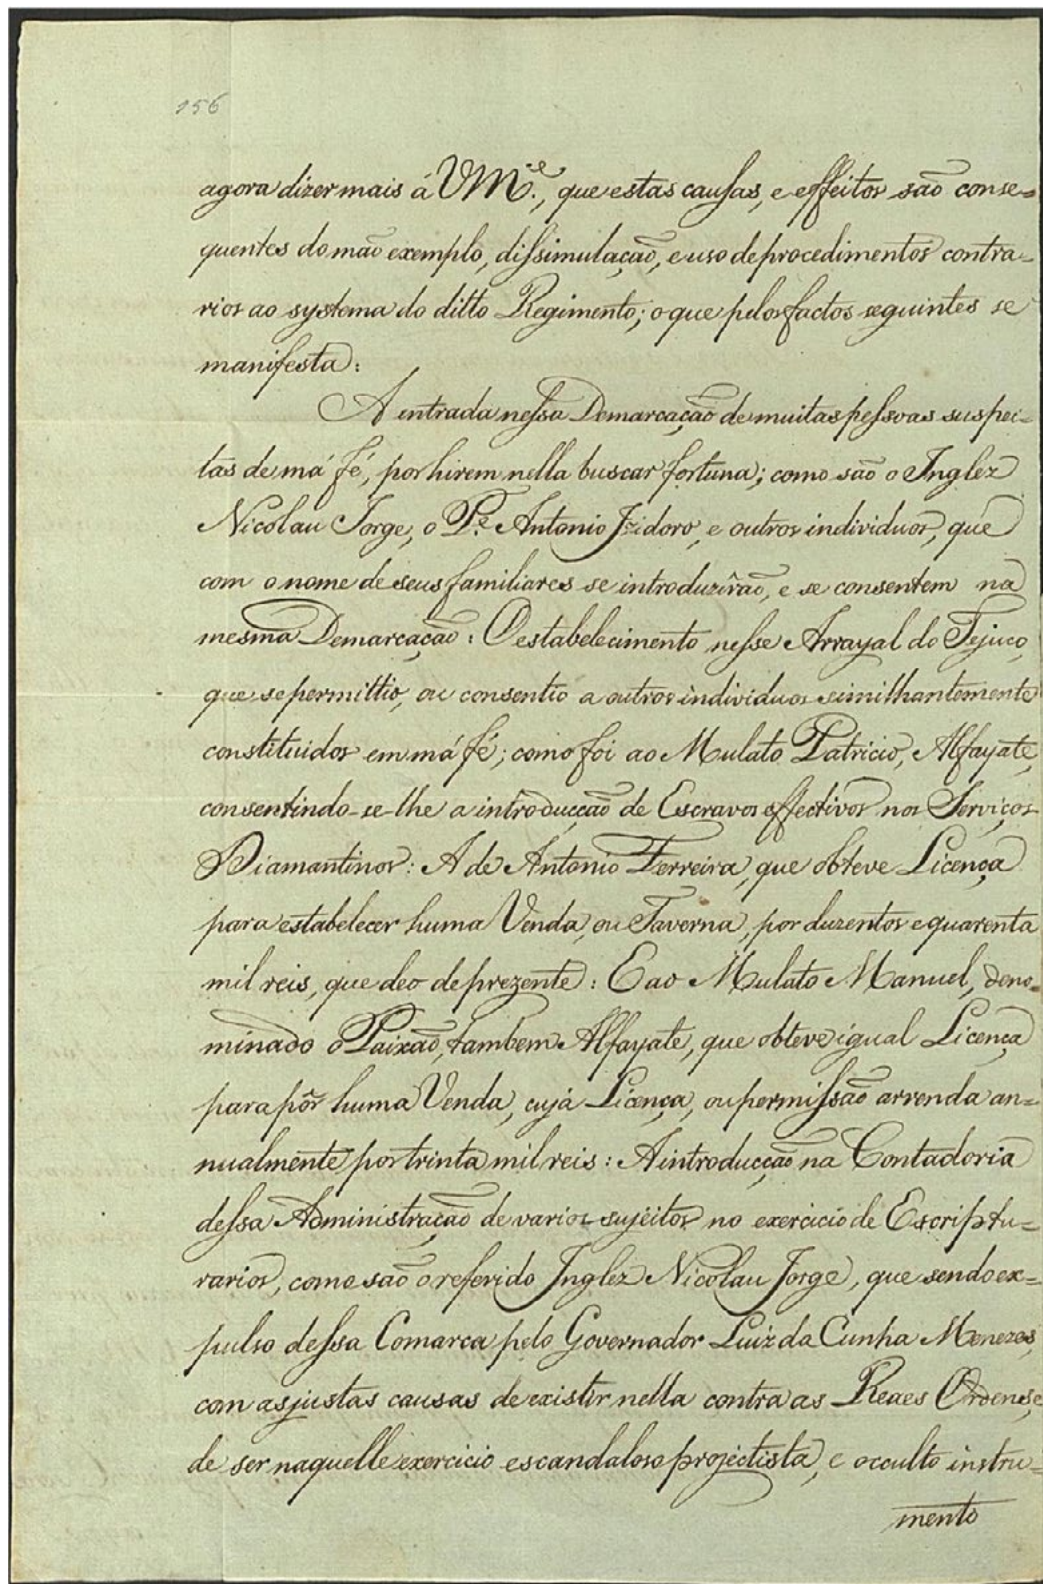 156
agora dizer mais á VM.ce, que estas causas, e effeitos são conse-
quentes do máo exemplo, dissimulação, e uso de procedimentos contra-
rios ao systema do ditto Regimento; o que pelos factos seguintes se
manifesta:
A intrada nessa Demarcação de muitas pessoas suspei-
tas de má fé, por hirem nella buscar fortuna; como são o Inglez
Nicolau Jorge, o P.e Antonio Izidoro, e outros individuos, que
com o nome de seus familiares se introduzîrão, e se consentem na
mesma Demarcação: O estabelecimento nesse Arrayal do Tejuco,
que se permittio, ou consentio a outros individuos similhantemente
constituidos em má fé; como foi ao Mulato Patricio, Alfayate,
consentindo-se-lhe a introducção de Escravos effectivos nos Serviços
Diamantinos: A de Antonio Ferreira, que obteve Licença
para estabelecer huma Venda, ou Taverna, por duzentos e quarenta
mil reis, que deo de prezente: E ao Mulato Manuel, deno-
minado o Paixão, tambem Alfayate, que obteve igual Licença
para pôr huma Venda, cuja Licença, ou permissão arrenda an-
nualmente por trinta mil reis: A introducção na Contadoria
dessa Administração de varios sujeitos no exercicio de Escriptu-
rarios, como são o referido Inglez Nicolau Jorge, que sendo ex-
pulso dessa Comarca pelo Governador Luiz da Cunha Menezes,
com as justas causas de existir nella contra as Reaes Ordens, e
de ser naquelle exercicio escandaloso projectista, e occulto instru-
mento